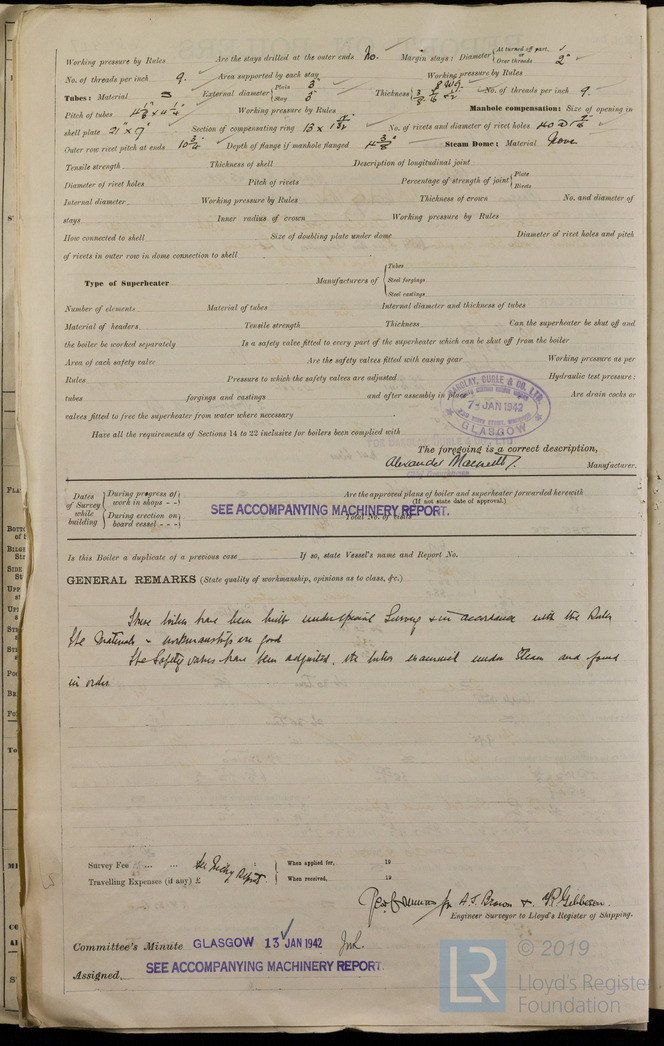 Working pressure by Rules Are the stays drilled at the outer ends No. Margin stays: Diameter { At turned off part, or Over threads 2"
No. of threads per inch 9. Area supported by each stay Working pressure by Rules
Tubes: Material S External diameter { Plain 3" Stay 3" Thickness { 8 W.G. 3/8 5/16 1/2 No. of threads per inch 9.
Pitch of tubes 4 1/8" x 4 1/4" Working pressure by Rules Manhole compensation: Size of opening in
shell plate 21" x 17" Section of compensating ring No. of rivets and diameter of rivet holes
Outer row rivet pitch at ends 10 3/4" Depth of flange if manhole flanged 4 3/8" Steam Dome: Material None
Tensile strength Thickness of shell Description of longitudinal joint
Diameter of rivet holes Pitch of rivets Percentage of strength of joint { Plate Rivets
Internal diameter Working pressure by Rules Thickness of crown No. and diameter of
stays Inner radius of crown Working pressure by Rules
How connected to shell Size of doubling plate under dome Diameter of rivet holes and pitch
of rivets in outer row in dome connection to shell
Type of Superheater Manufacturers of { Tubes Steel forgings Steel castings
Number of elements Material of tubes Internal diameter and thickness of tubes
Material of headers Tensile strength Thickness Can the superheater be shut off and
the boiler be worked separately Is a safety valve fitted to every part of the superheater which can be shut off from the boiler
Area of each safety valve Are the safety valves fitted with easing gear Working pressure as per
Rules Pressure to which the safety valves are adjusted Hydraulic test pressure:
tubes forgings and castings and after assembly in place Are drain cocks or
valves fitted to free the superheater from water where necessary
BARCLAY, CURLE & CO. LTD.
7 - JAN 1942
GLASGOW
Have all the requirements of Sections 14 to 22 inclusive for boilers been complied with
The foregoing is a correct description,
Manufacturer.
Dates of Survey while building { During progress of work in shops - - Are the approved plans of boiler and superheater forwarded herewith
(If not state date of approval.)
During erection on board vessel - - - Total No. of visits
SEE ACCOMPANYING MACHINERY REPORT.
Is this Boiler a duplicate of a previous case If so, state Vessel's name and Report No.
GENERAL REMARKS (State quality of workmanship, opinions as to class, &c.)
These boilers have been built under Special Survey & in accordance with the Rules
The Materials & workmanship are good
The Safety valves have been adjusted, the boilers examined under Steam and found
in order.
Survey Fee ... ... See Mchy Report. When applied for, 19
Travelling Expenses (if any) £ When received, 19
for A.J. Brown &
Engineer Surveyor to Lloyd's Register of Shipping.
Committee's Minute GLASGOW 13 JAN 1942
Assigned SEE ACCOMPANYING MACHINERY REPORT.
© 2019
Lloyd's Register
Foundation
LR